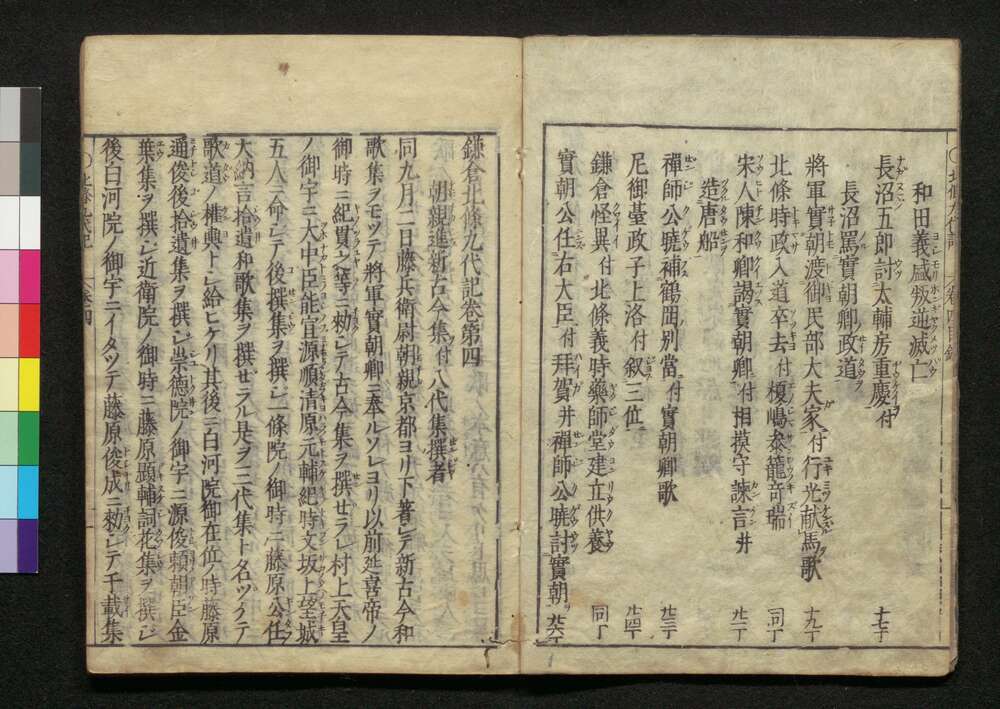 和田義盛叛逆滅亡
長沼五郎討太輔房重慶付 十七丁
長沼罵實朝卿ノ政道
將軍實朝渡御民部大夫家ニ付行光献馬歌 十九丁
北條時政入道卒去付榎嶋参籠奇瑞 同丁
宋人陳和卿謁實朝卿付相摸守諫言并 廿一丁
造唐船
禪師公暁補鶴岡別當ニ付實朝卿歌 廿三丁
尼御臺政子上洛付叙三位ニ 廿四丁
鎌倉怪異付北條義時藥師堂建立供養 同丁
實朝公任右大臣ニ付拜賀并禪師公暁討實朝ヲ 廿六丁
鎌倉北條九代記巻第四
朝親進新古今集付八代集撰者
同九月二日藤兵衛尉朝親京都ヨリ下著シテ新古今和
歌集ヲモツテ將軍實朝卿ニ奉ルソレヨリ以前延喜帝ノ
御時ニ紀貫之等ニ勅シテ古今集ヲ撰セラレ村上天皇
ノ御宇ニ大中臣能宣源順清原元輔紀時文坂上望城
五人ニ命シテ後撰集ヲ撰シ一條院ノ御時ニ藤原公任
大納言拾遺和歌集ヲ撰セラル是ヲ三代集ト名ツケテ
歌道ノ樵典トシ給ヒケリ其後ニ白河院御在位ノ時藤原
通俊後拾遺集ヲ撰シ崇德院ノ御宇ニ源俊賴朝臣金
葉集ヲ撰シ近衛院ノ御時ニ藤原顕輔詞花集ヲ撰シ
後白河院ノ御宇ニイタツテ藤原俊成ニ勅シテ千載集